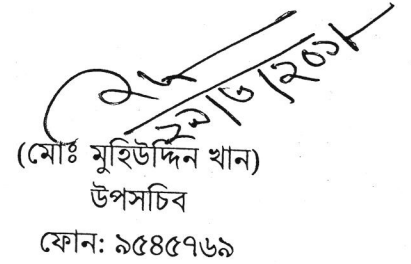 (মোঃ মুহিউদ্দিন খান)
উপসচিব
ফোন: ৯৫৪৫৭৬৯